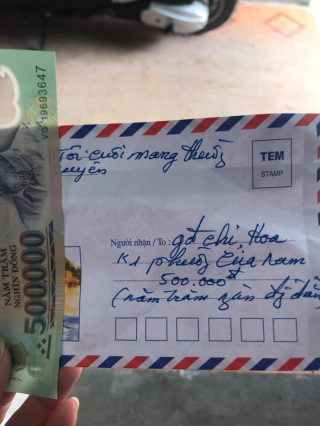 VG 19693647
NĂM TRĂM
NGHÌN ĐỒNG
500.000
Tôi cuối mang
TEM
STAMP
Người nhận / To: gđ chị Hoa
K1 phường Cửa Nam
500.000đ
(năm trăm ngàn